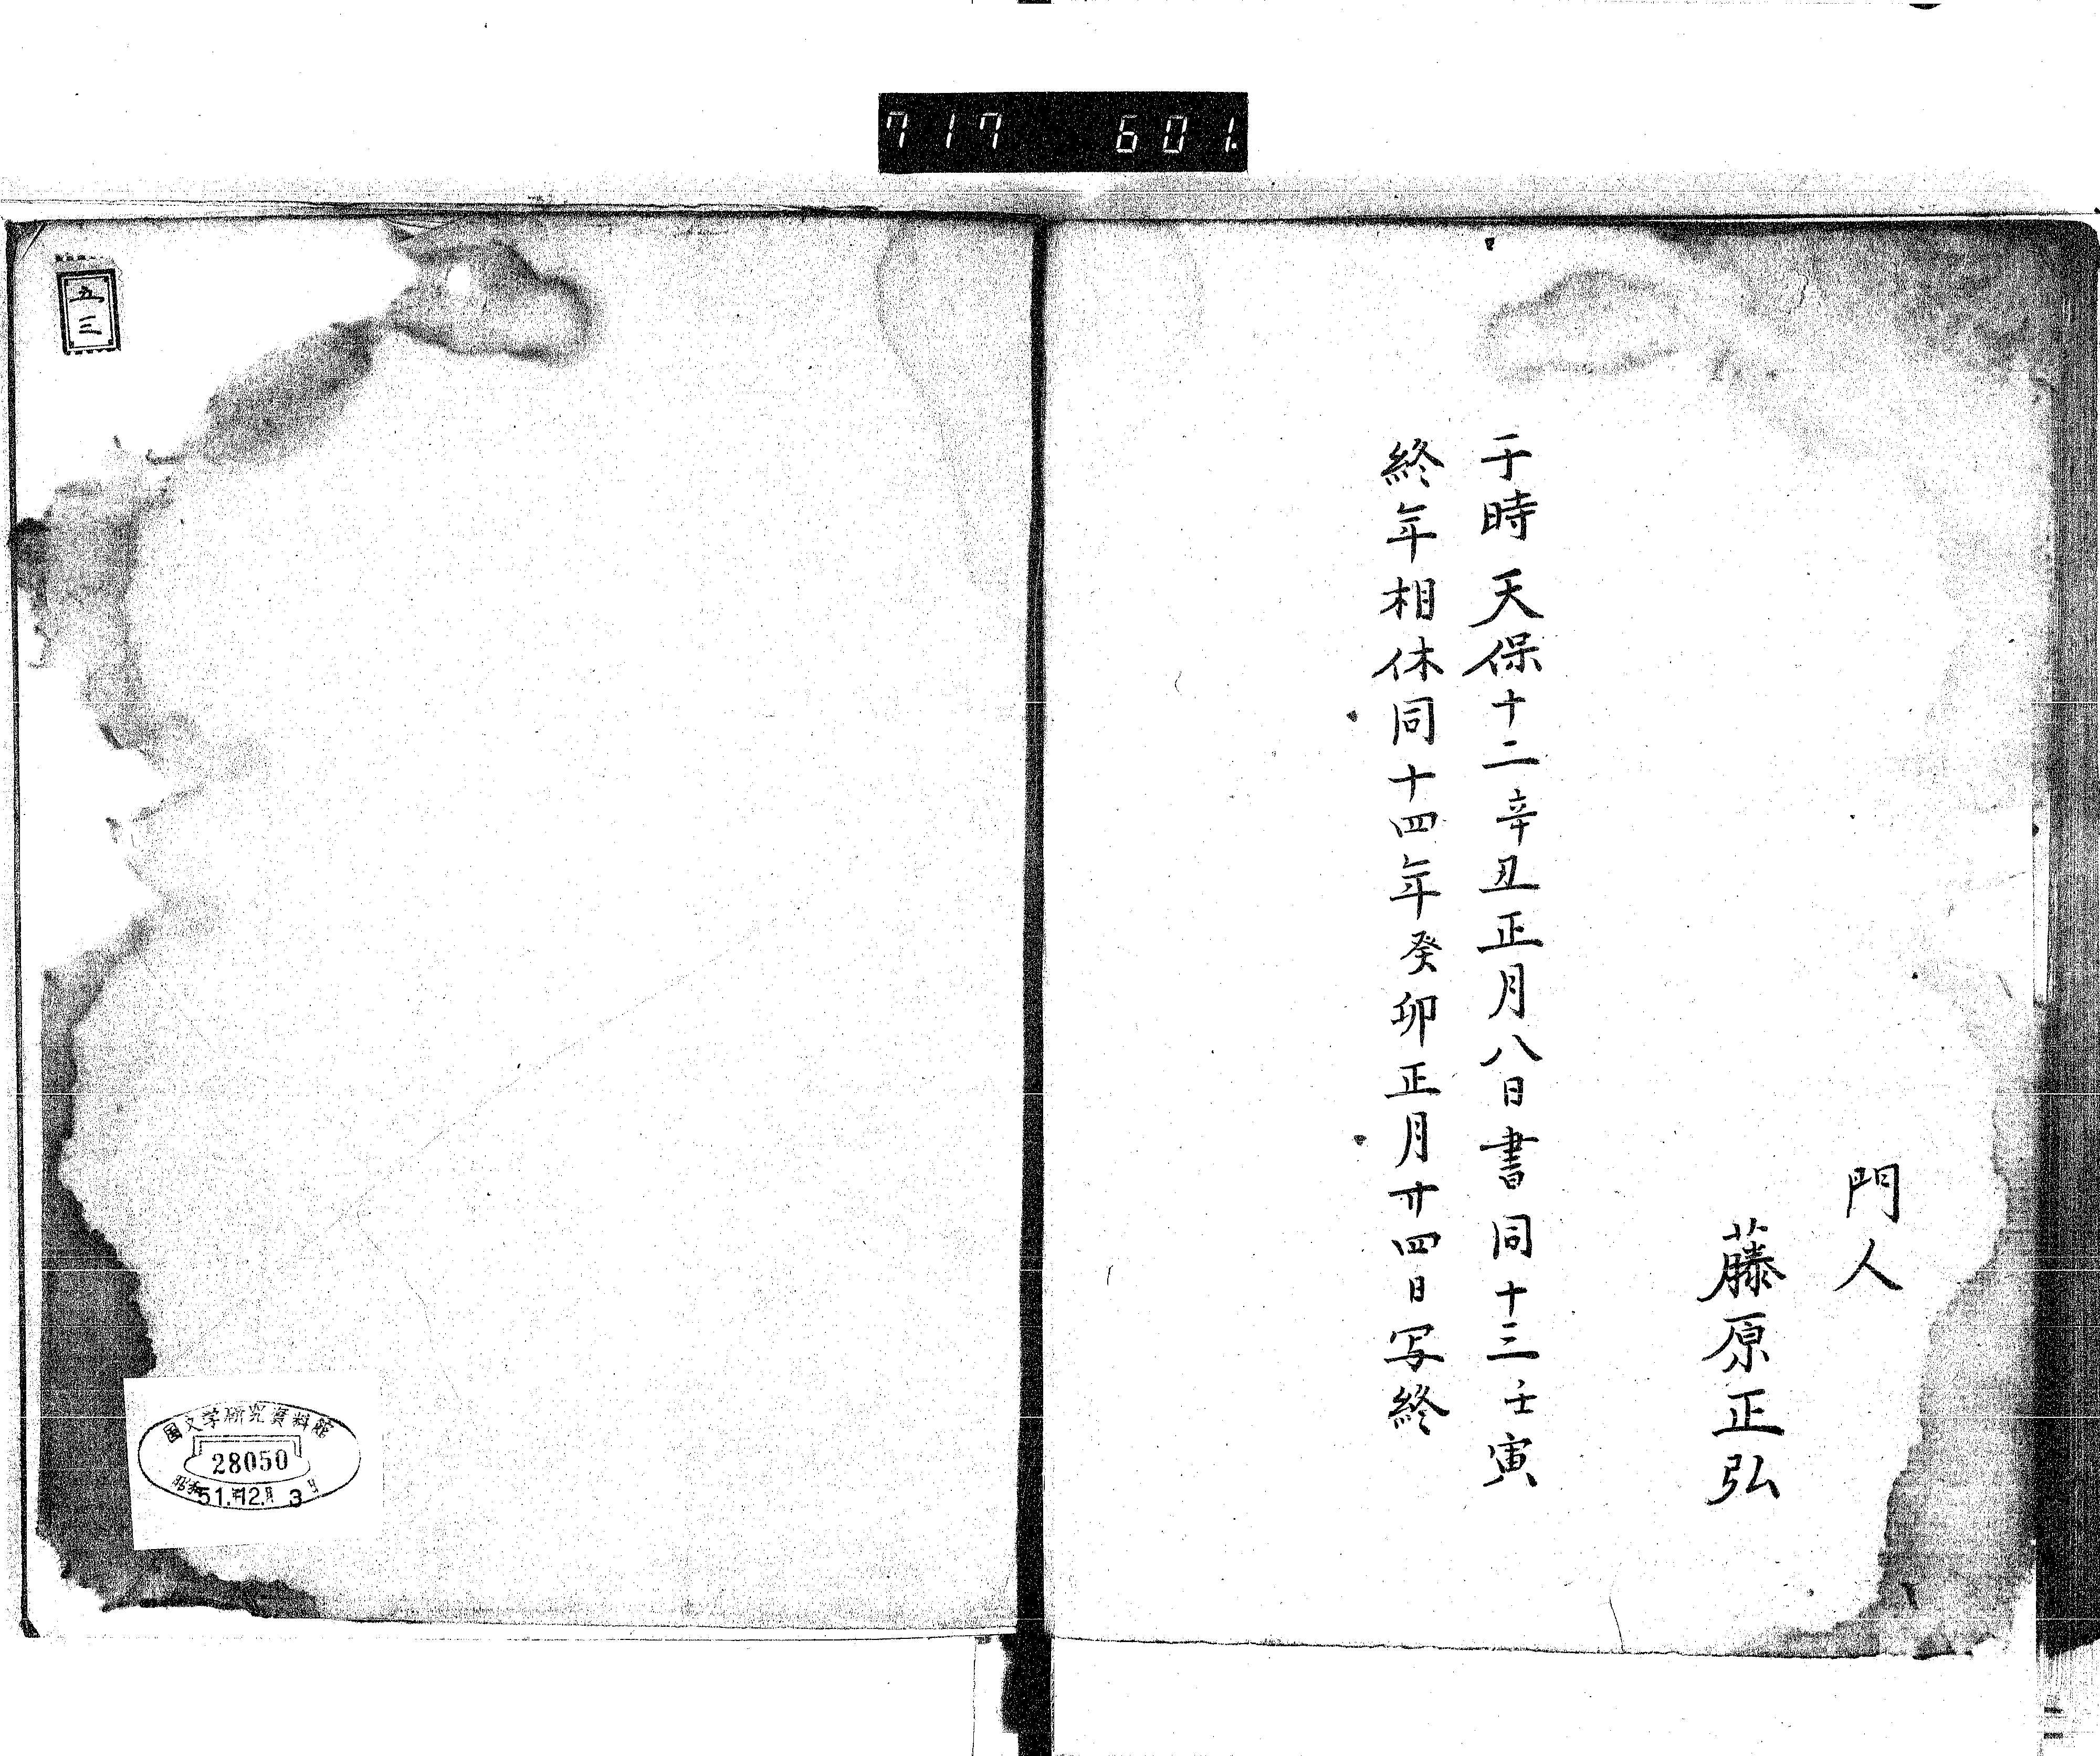 717 601.
門人
藤原正弘
于時天保十二辛丑正月八日書同十三壬寅
終年相休同十四年癸卯正月廿四日写終
五三
国文学研究資料館
28050
昭和51年12月3日